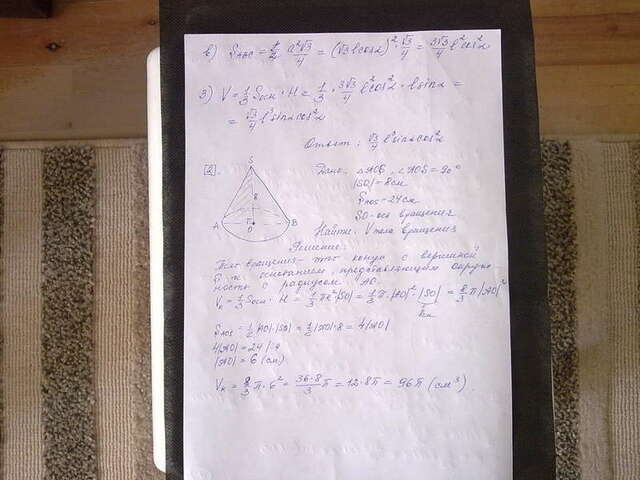 S_ABC = a²√3/4 = (√3 l cosα)² · √3/4 = 3√3/4 l²cos²α
3) V = 1/3 S_осн · H = 1/3 · 3√3/4 l²cos²α · l sinα =
= √3/4 l³ sinα cos²α
Ответ: √3/4 l³ sinα cos²α
2.
Дано: △AOS, ∠AOS = 90°
|SO| = 8 см
S_AOS = 24 см
SO - ось вращения
Найти: V тела вращения
S
8
A
B
O
Решение:
Тело вращения - это конус с вершиной
S и основанием, представляющим окруж-
ность с радиусом AO.
V_к = 1/3 S_осн · H = 1/3 πR²|SO| = 1/3 π·|AO|²·|SO| = 8/3 π|AO|²
S_AOS = 1/2 |AO|·|SO| = 1/2 |AO|·8 = 4|AO|
4|AO| = 24 |:4
|AO| = 6 (см)
V_к = 8/3 π·6² = 36·8/3 π = 12·8π = 96π (см³).